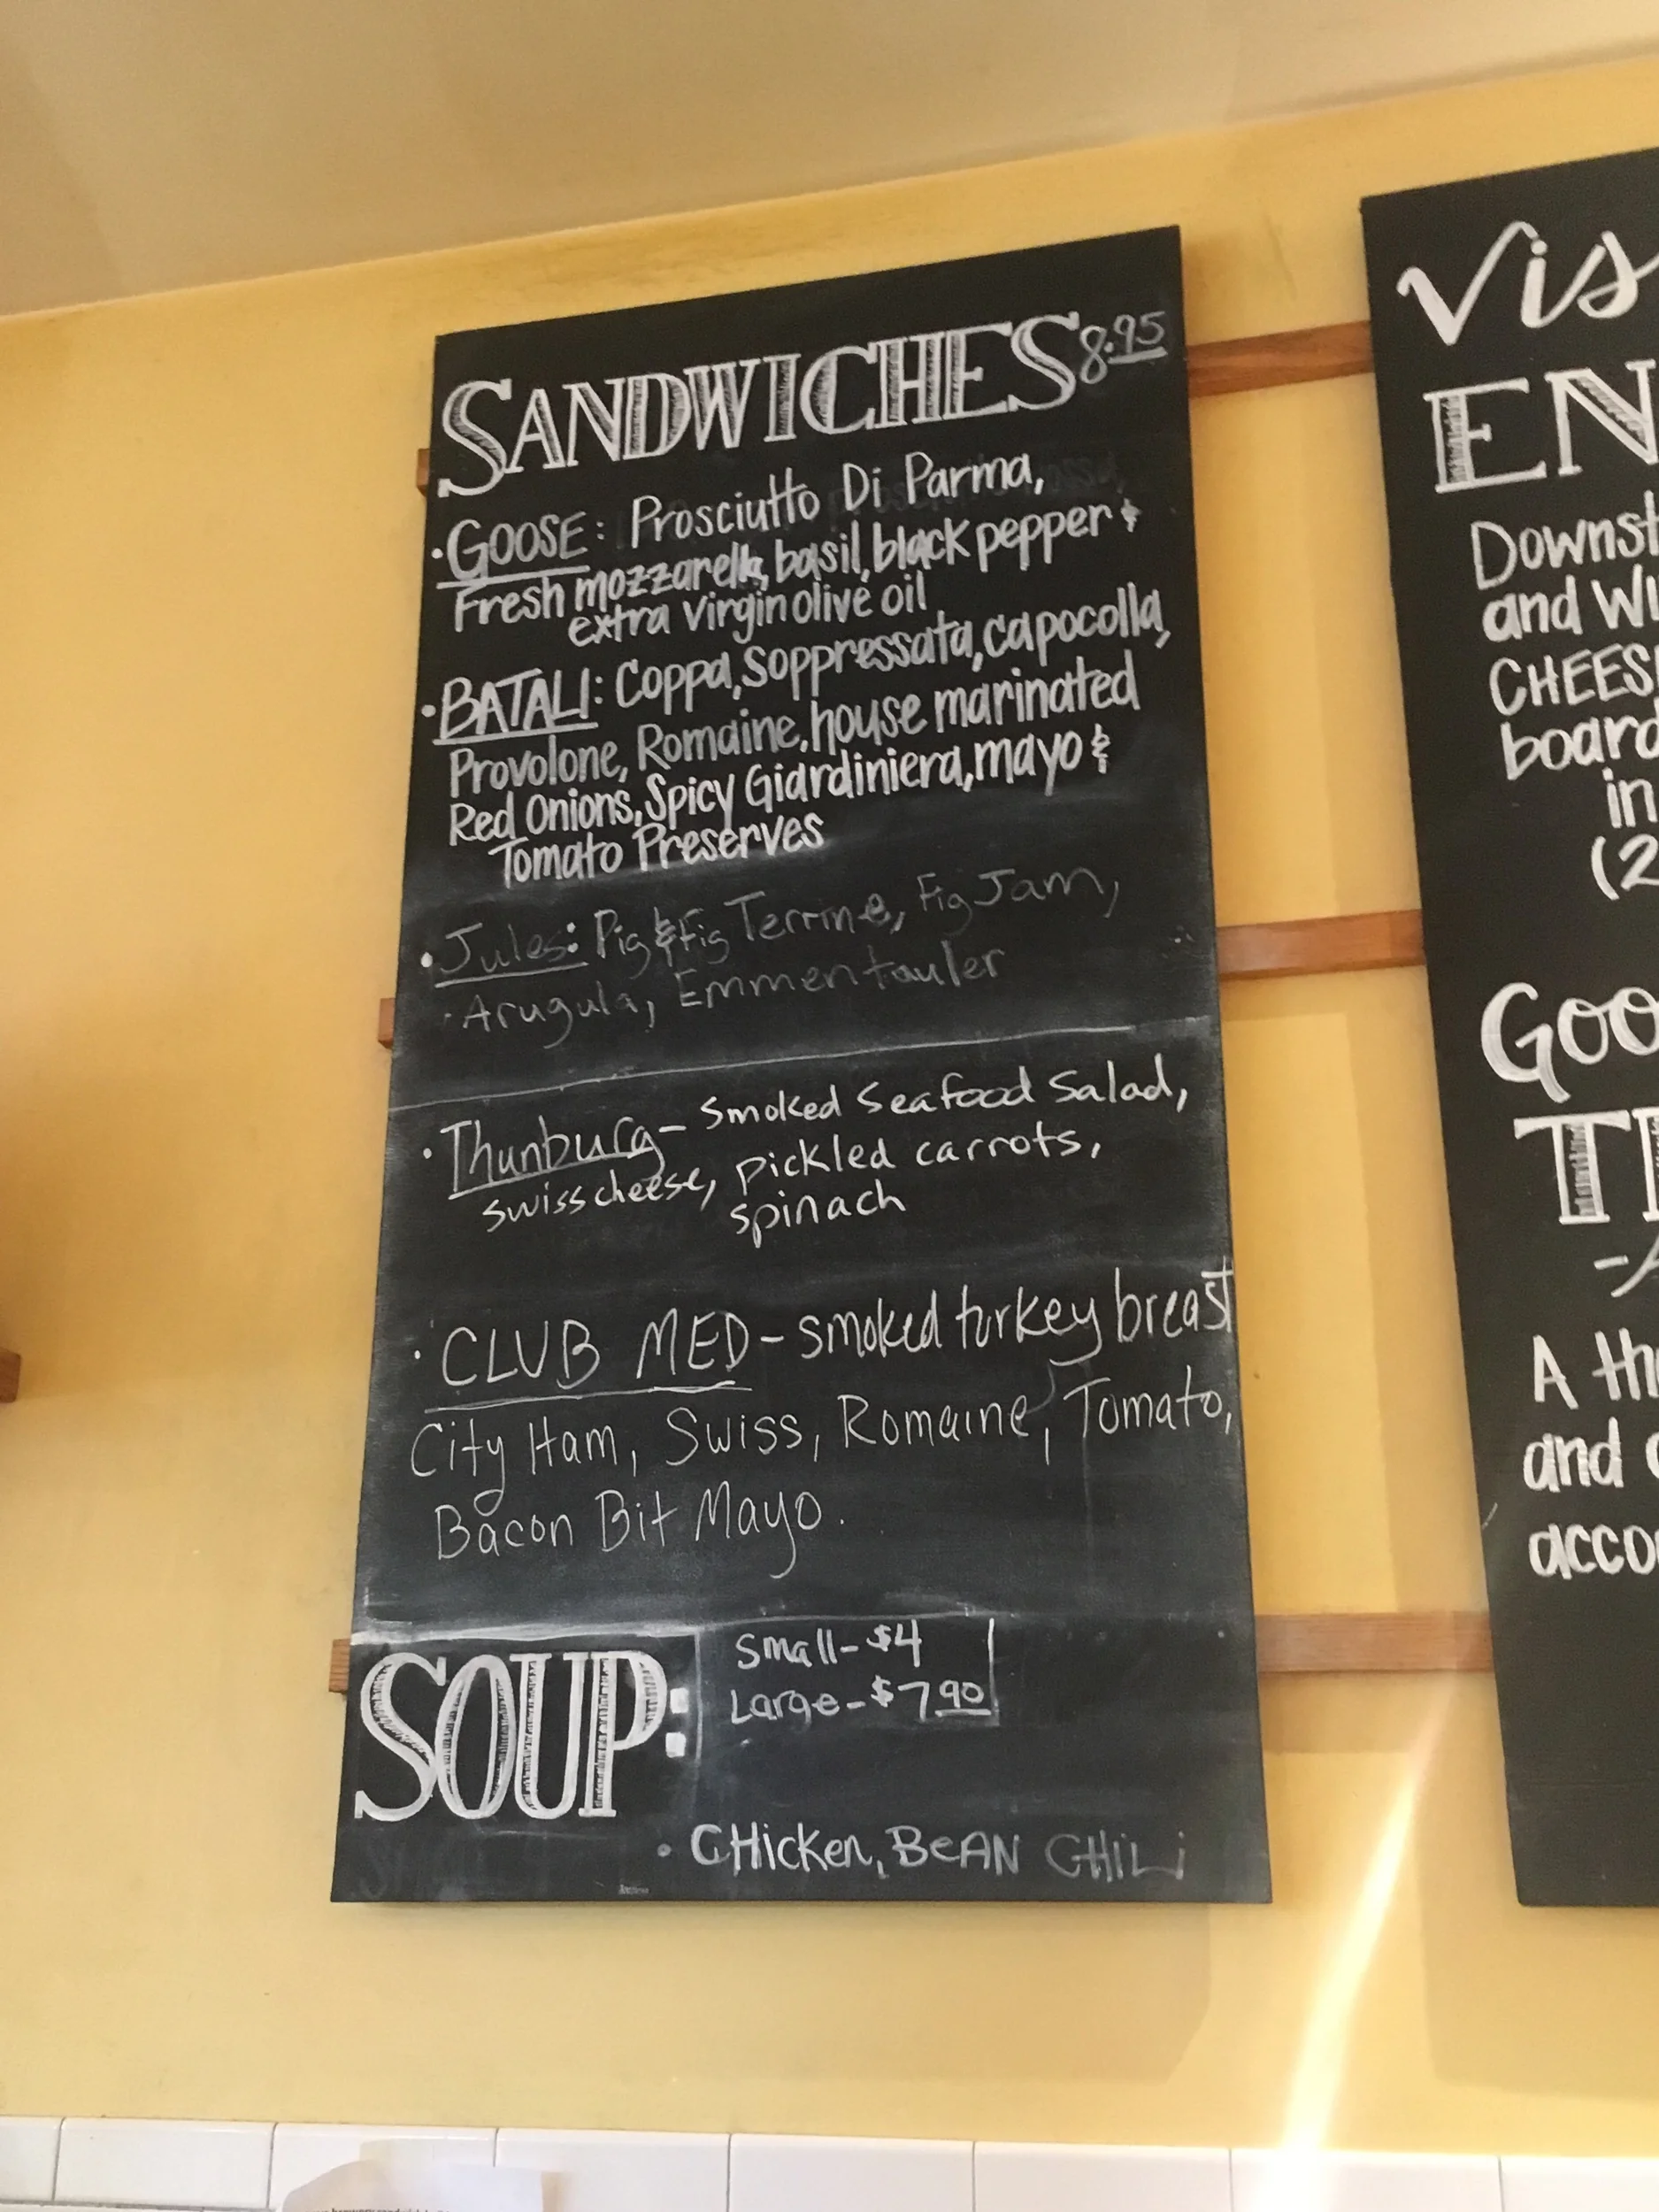 SANDWICHES 8.95
• GOOSE: Prosciutto Di Parma,
Fresh mozzarella, basil, black pepper &
extra virgin olive oil
• BATALI: Coppa, Soppressata, capocolla,
Provolone, Romaine, house marinated
Red Onions, Spicy Giardiniera, mayo &
Tomato Preserves
• Jules: Pig & Fig Terrine, Fig Jam,
Arugula, Emmentauler
• Thunburg - Smoked Seafood Salad,
swiss cheese, pickled carrots,
spinach
• CLUB MED - smoked turkey breast
City Ham, Swiss, Romaine, Tomato,
Bacon Bit Mayo.
SOUP:
Small - $4
Large - $7 90
• CHicken, BeAN CHiLi
Vis
EN
Downst
and Wi
CHEES
board
in
(2
GOO
T
A th
and
acco